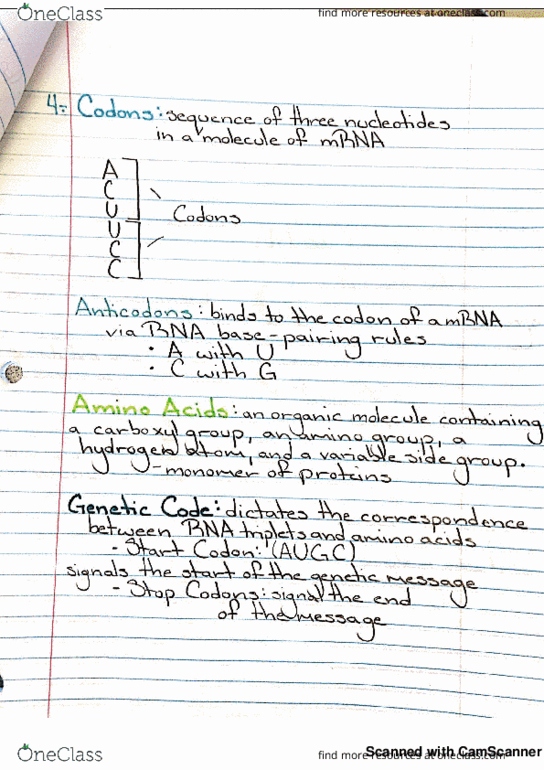 OneClass
find more resources at oneclass.com
4: Codons: sequence of three nucleotides
in a molecule of mRNA
A
C
U
Codons
U
C
C
Anticodons: binds to the codon of a mRNA
via RNA base-pairing rules
· A with U
· C with G
Amino Acids: an organic molecule containing
a carboxyl group, an amino group, a
hydrogen atom, and a variable side group.
-monomer of proteins
Genetic Code: dictates the correspondence
between RNA triplets and amino acids
- Start Codon: (AUGC)
signals the start of the genetic message
- Stop Codons: signal the end
of the message
OneClass
find more resources at oneclass.com
Scanned with CamScanner